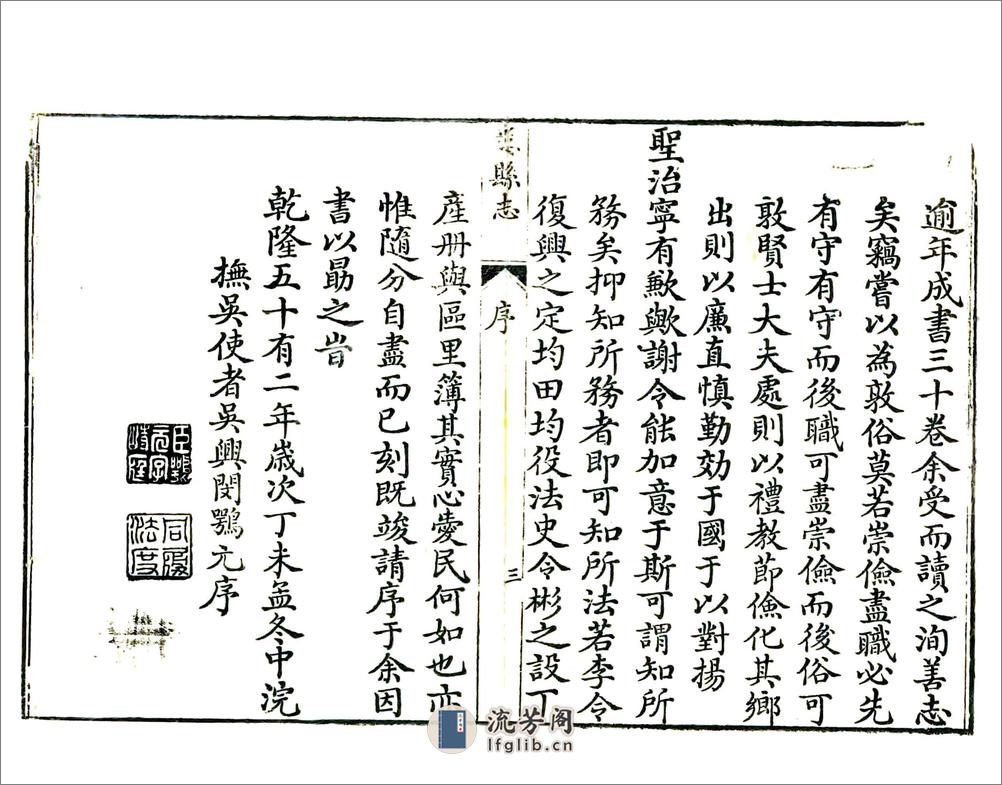 逾年成書三十卷余受而讀之洵善志
矣竊嘗以為敦俗莫若崇儉盡職必先
有守有守而後職可盡崇儉而後俗可
敦賢士大夫處則以禮教節儉化其鄉
出則以廉直慎勤効于國于以對揚
聖治寧有歉歟謝令能加意于斯可謂知所
務矣抑知所務者即可知所法若李令
復興之定均田均役法史令彬之設丁
縣志
序
三
產册與區里簿其實心愛民何如也亦
惟隨分自盡而已刻既竣請序于余因
書以勗之旹
乾隆五十有二年歲次丁未孟冬中浣
撫吳使者吳興閔鶚元序
流芳阁
lfglib.cn